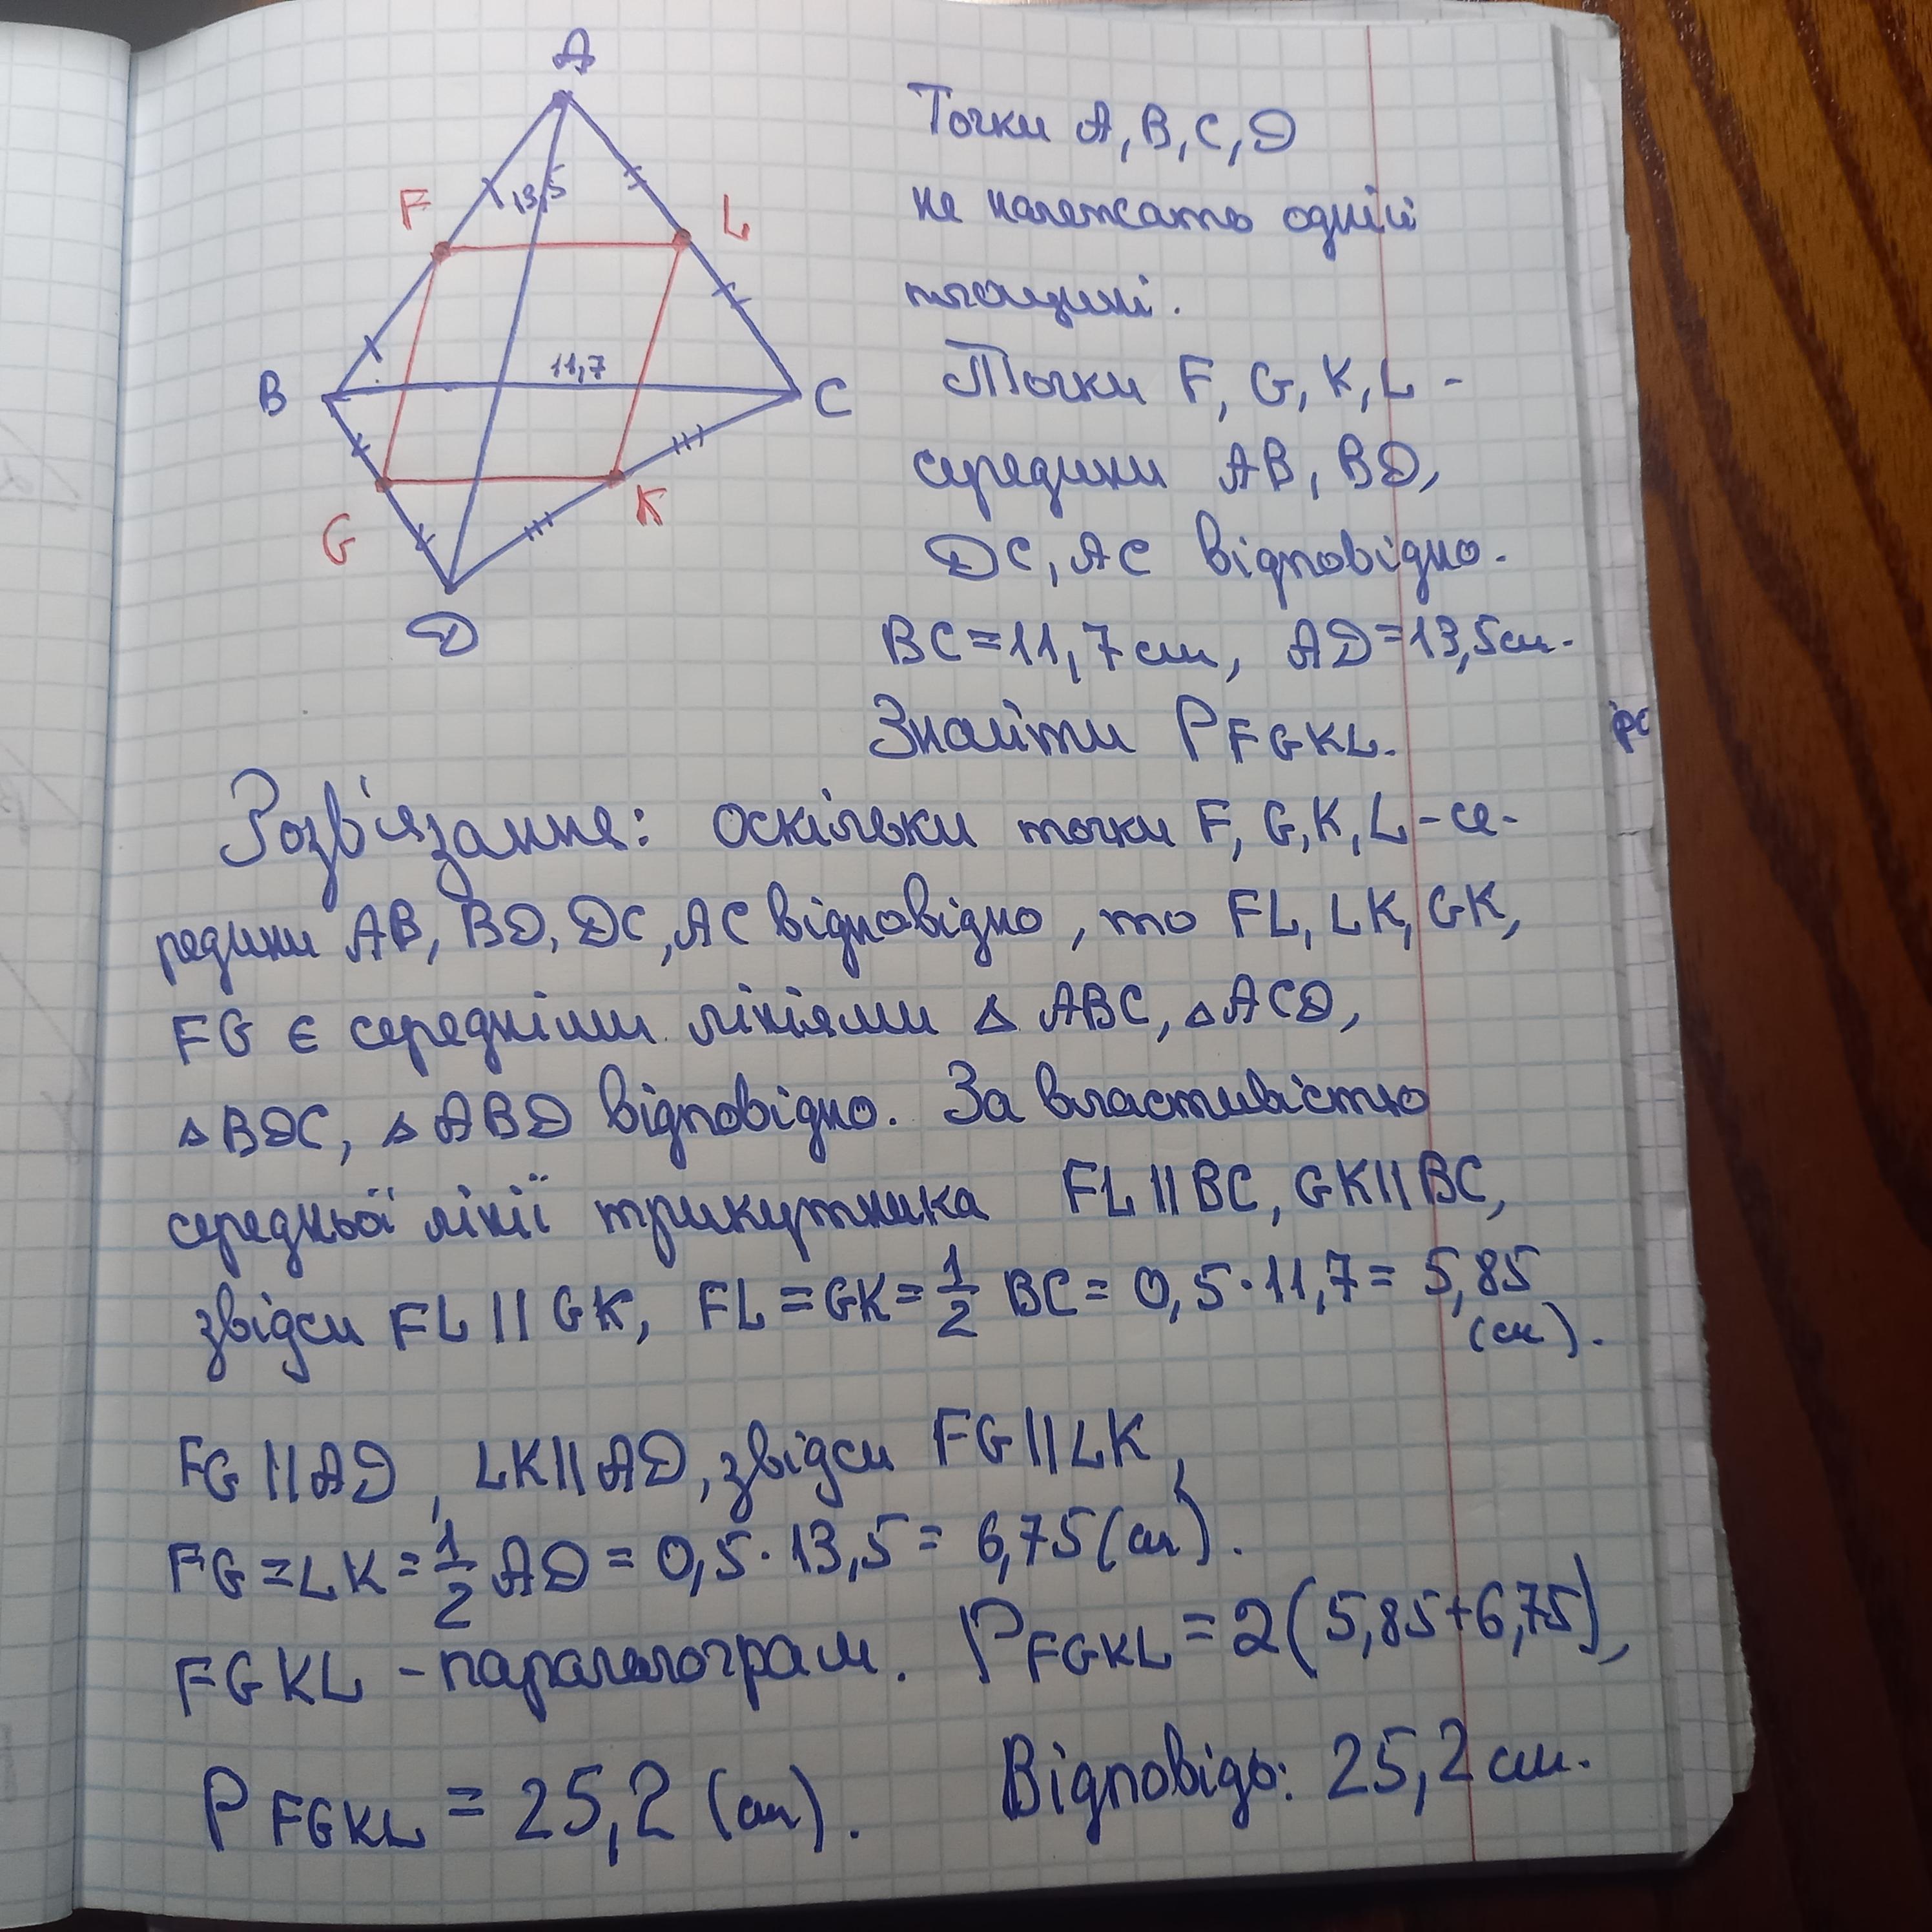 A
F
13,5
L
B
11,7
C
G
K
D
Точки A, B, C, D
не належать одній
площині.
Точки F, G, K, L -
середини AB, BD,
DC, AC відповідно.
BC = 11,7 см, AD = 13,5 см.
Знайти P FGKL.
Розв'язання: Оскільки точки F, G, K, L - се-
редини AB, BD, DC, AC відповідно, то FL, LK, GK,
FG є середніми лініями △ ABC, △ ACD,
△ BDC, △ ABD відповідно. За властивістю
середньої лінії трикутника FL || BC, GK || BC,
звідси FL || GK, FL = GK = 1/2 BC = 0,5 · 11,7 = 5,85
(см).
FG || AD, LK || AD, звідси FG || LK,
FG = LK = 1/2 AD = 0,5 · 13,5 = 6,75 (см).
FGKL - паралелограм. P FGKL = 2(5,85+6,75),
P FGKL = 25,2 (см). Відповідь: 25,2 см.